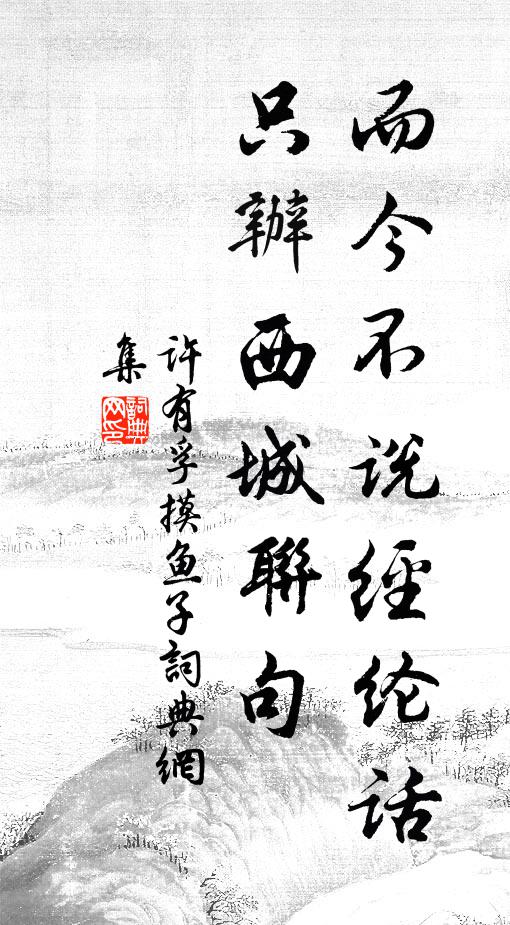 而今不说經纶话
只辦西城聯句
许有孚摸鱼子詞典網
集
詞典網印